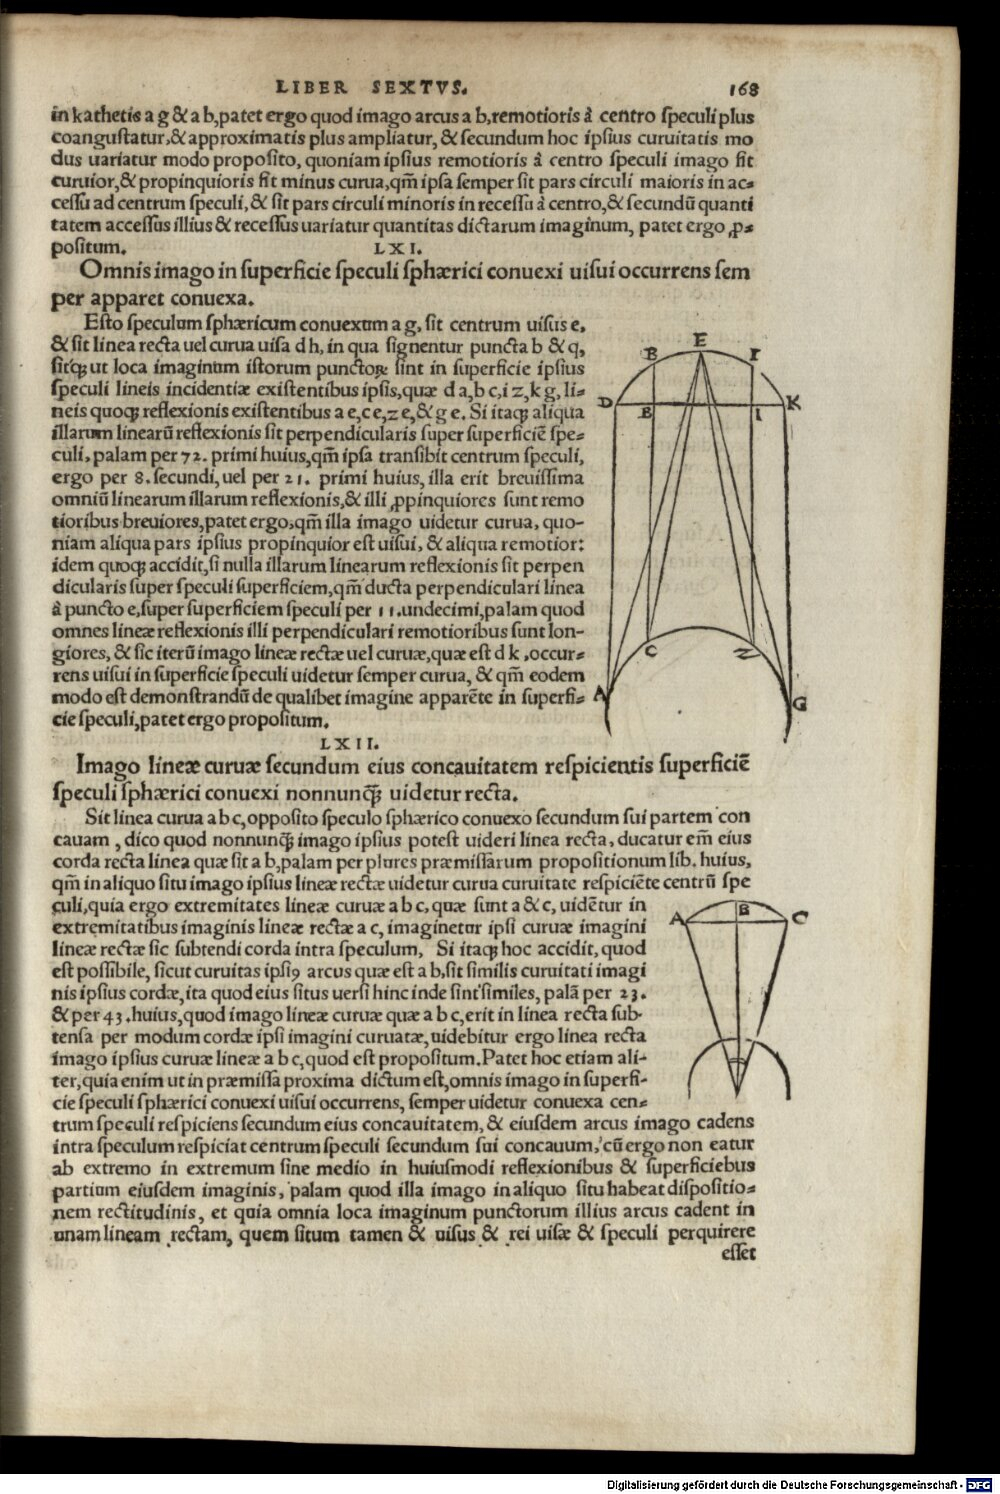 LIBER SEXTVS. 168
in kathetis a g & a b, patet ergo quod imago arcus a b, remotioris à centro speculi plus
coangustatur, & approximatis plus ampliatur, & secundum hoc ipsius curuitatis mo
dus uariatur modo proposito, quoniam ipsius remotioris à centro speculi imago fit
curuior, & propinquioris fit minus curua, qm̃ ipsa semper fit pars circuli maioris in ac-
cessu ad centrum speculi, & fit pars circuli minoris in recessu à centro, & secundū quanti
tatem accessus illius & recessus uariatur quantitas dictarum imaginum, patet ergo ꝓ-
positum. LXI.
Omnis imago in superficie speculi sphærici conuexi uisui occurrens sem
per apparet conuexa.
Esto speculum sphæricum conuexum a g, sit centrum uisus e,
& sit linea recta uel curua uisa d h, in qua signentur puncta b & q,
sitq́ꝫ ut loca imaginum istorum punctoꝝ sint in superficie ipsius
speculi lineis incidentiæ existentibus ipsis, quæ d a, b c, i z, k g, li-
neis quoqꝫ reflexionis existentibus a e, c e, z e, & g e. Si itaqꝫ aliqua
illarum linearū reflexionis sit perpendicularis super superficiē spe-
culi, palam per 72. primi huius, qm̃ ipsa transibit centrum speculi,
ergo per 8. secundi, uel per 21. primi huius, illa erit breuissima
omniū linearum illarum reflexionis, & illi ꝓpinquiores sunt remo
tioribus breuiores, patet ergo, qm̃ illa imago uidetur curua, quo-
niam aliqua pars ipsius propinquior est uisui, & aliqua remotior:
idem quoqꝫ accidit, si nulla illarum linearum reflexionis sit perpen
dicularis super speculi superficiem, qm̃ ducta perpendiculari linea
à puncto e, super superficiem speculi per 11. undecimi, palam quod
omnes lineæ reflexionis illi perpendiculari remotioribus sunt lon-
giores, & sic iterū imago lineæ rectæ uel curuæ, quæ est d k, occur-
rens uisui in superficie speculi uidetur semper curua, & qm̃ eodem
modo est demonstrandū de qualibet imagine apparēte in superfi-
cie speculi, patet ergo propositum.
B E I
D B I K
C Z
A G
LXII.
Imago lineæ curuæ secundum eius concauitatem respicientis superficiē
speculi sphærici conuexi nonnunq̃ꝫ uidetur recta.
Sit linea curua a b c, opposito speculo sphærico conuexo secundum sui partem con
cauam, dico quod nonnunq̃ꝫ imago ipsius potest uideri linea recta, ducatur em̃ eius
corda recta linea quæ sit a b, palam per plures præmissarum propositionum lib. huius,
qm̃ in aliquo situ imago ipsius lineæ rectæ uidetur curua curuitate respiciēte centrū spe
culi, quia ergo extremitates lineæ curuæ a b c, quæ sunt a & c, uidētur in
extremitatibus imaginis lineæ rectæ a c, imaginetur ipsi curuæ imagini
lineæ rectæ sic subtendi corda intra speculum, Si itaqꝫ hoc accidit, quod
est possibile, sicut curuitas ipsiꝰ arcus quæ est a b, sit similis curuitati imagi
nis ipsius cordæ, ita quod eius situs uersi hinc inde sint similes, palā per 23.
& per 43. huius, quod imago lineæ curuæ quæ a b c, erit in linea recta sub-
tensa per modum cordæ ipsi imagini curuatæ, uidebitur ergo linea recta
imago ipsius curuæ lineæ a b c, quod est propositum. Patet hoc etiam ali-
ter, quia enim ut in præmissa proxima dictum est, omnis imago in superfi-
cie speculi sphærici conuexi uisui occurrens, semper uidetur conuexa cen-
trum speculi respiciens secundum eius concauitatem, & eiusdem arcus imago cadens
intra speculum respiciat centrum speculi secundum sui concauum, cū ergo non eatur
ab extremo in extremum sine medio in huiusmodi reflexionibus & superficiebus
partium eiusdem imaginis, palam quod illa imago in aliquo situ habeat dispositio-
nem rectitudinis, et quia omnia loca imaginum punctorum illius arcus cadent in
unam lineam rectam, quem situm tamen & uisus & rei uisæ & speculi perquirere
esset
A B C
Digitalisierung gefördert durch die Deutsche Forschungsgemeinschaft - DFG